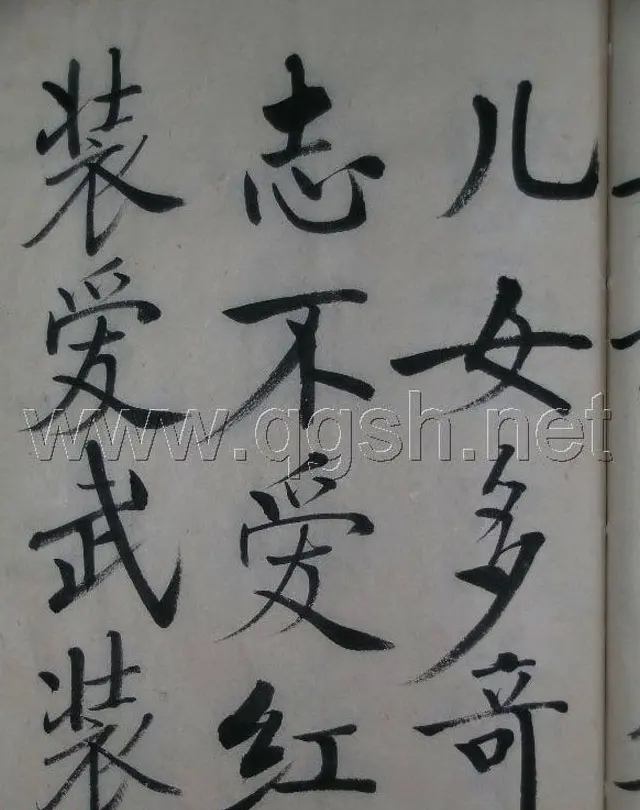 儿女多奇
志不爱红
装爱武装
www.qgsh.net